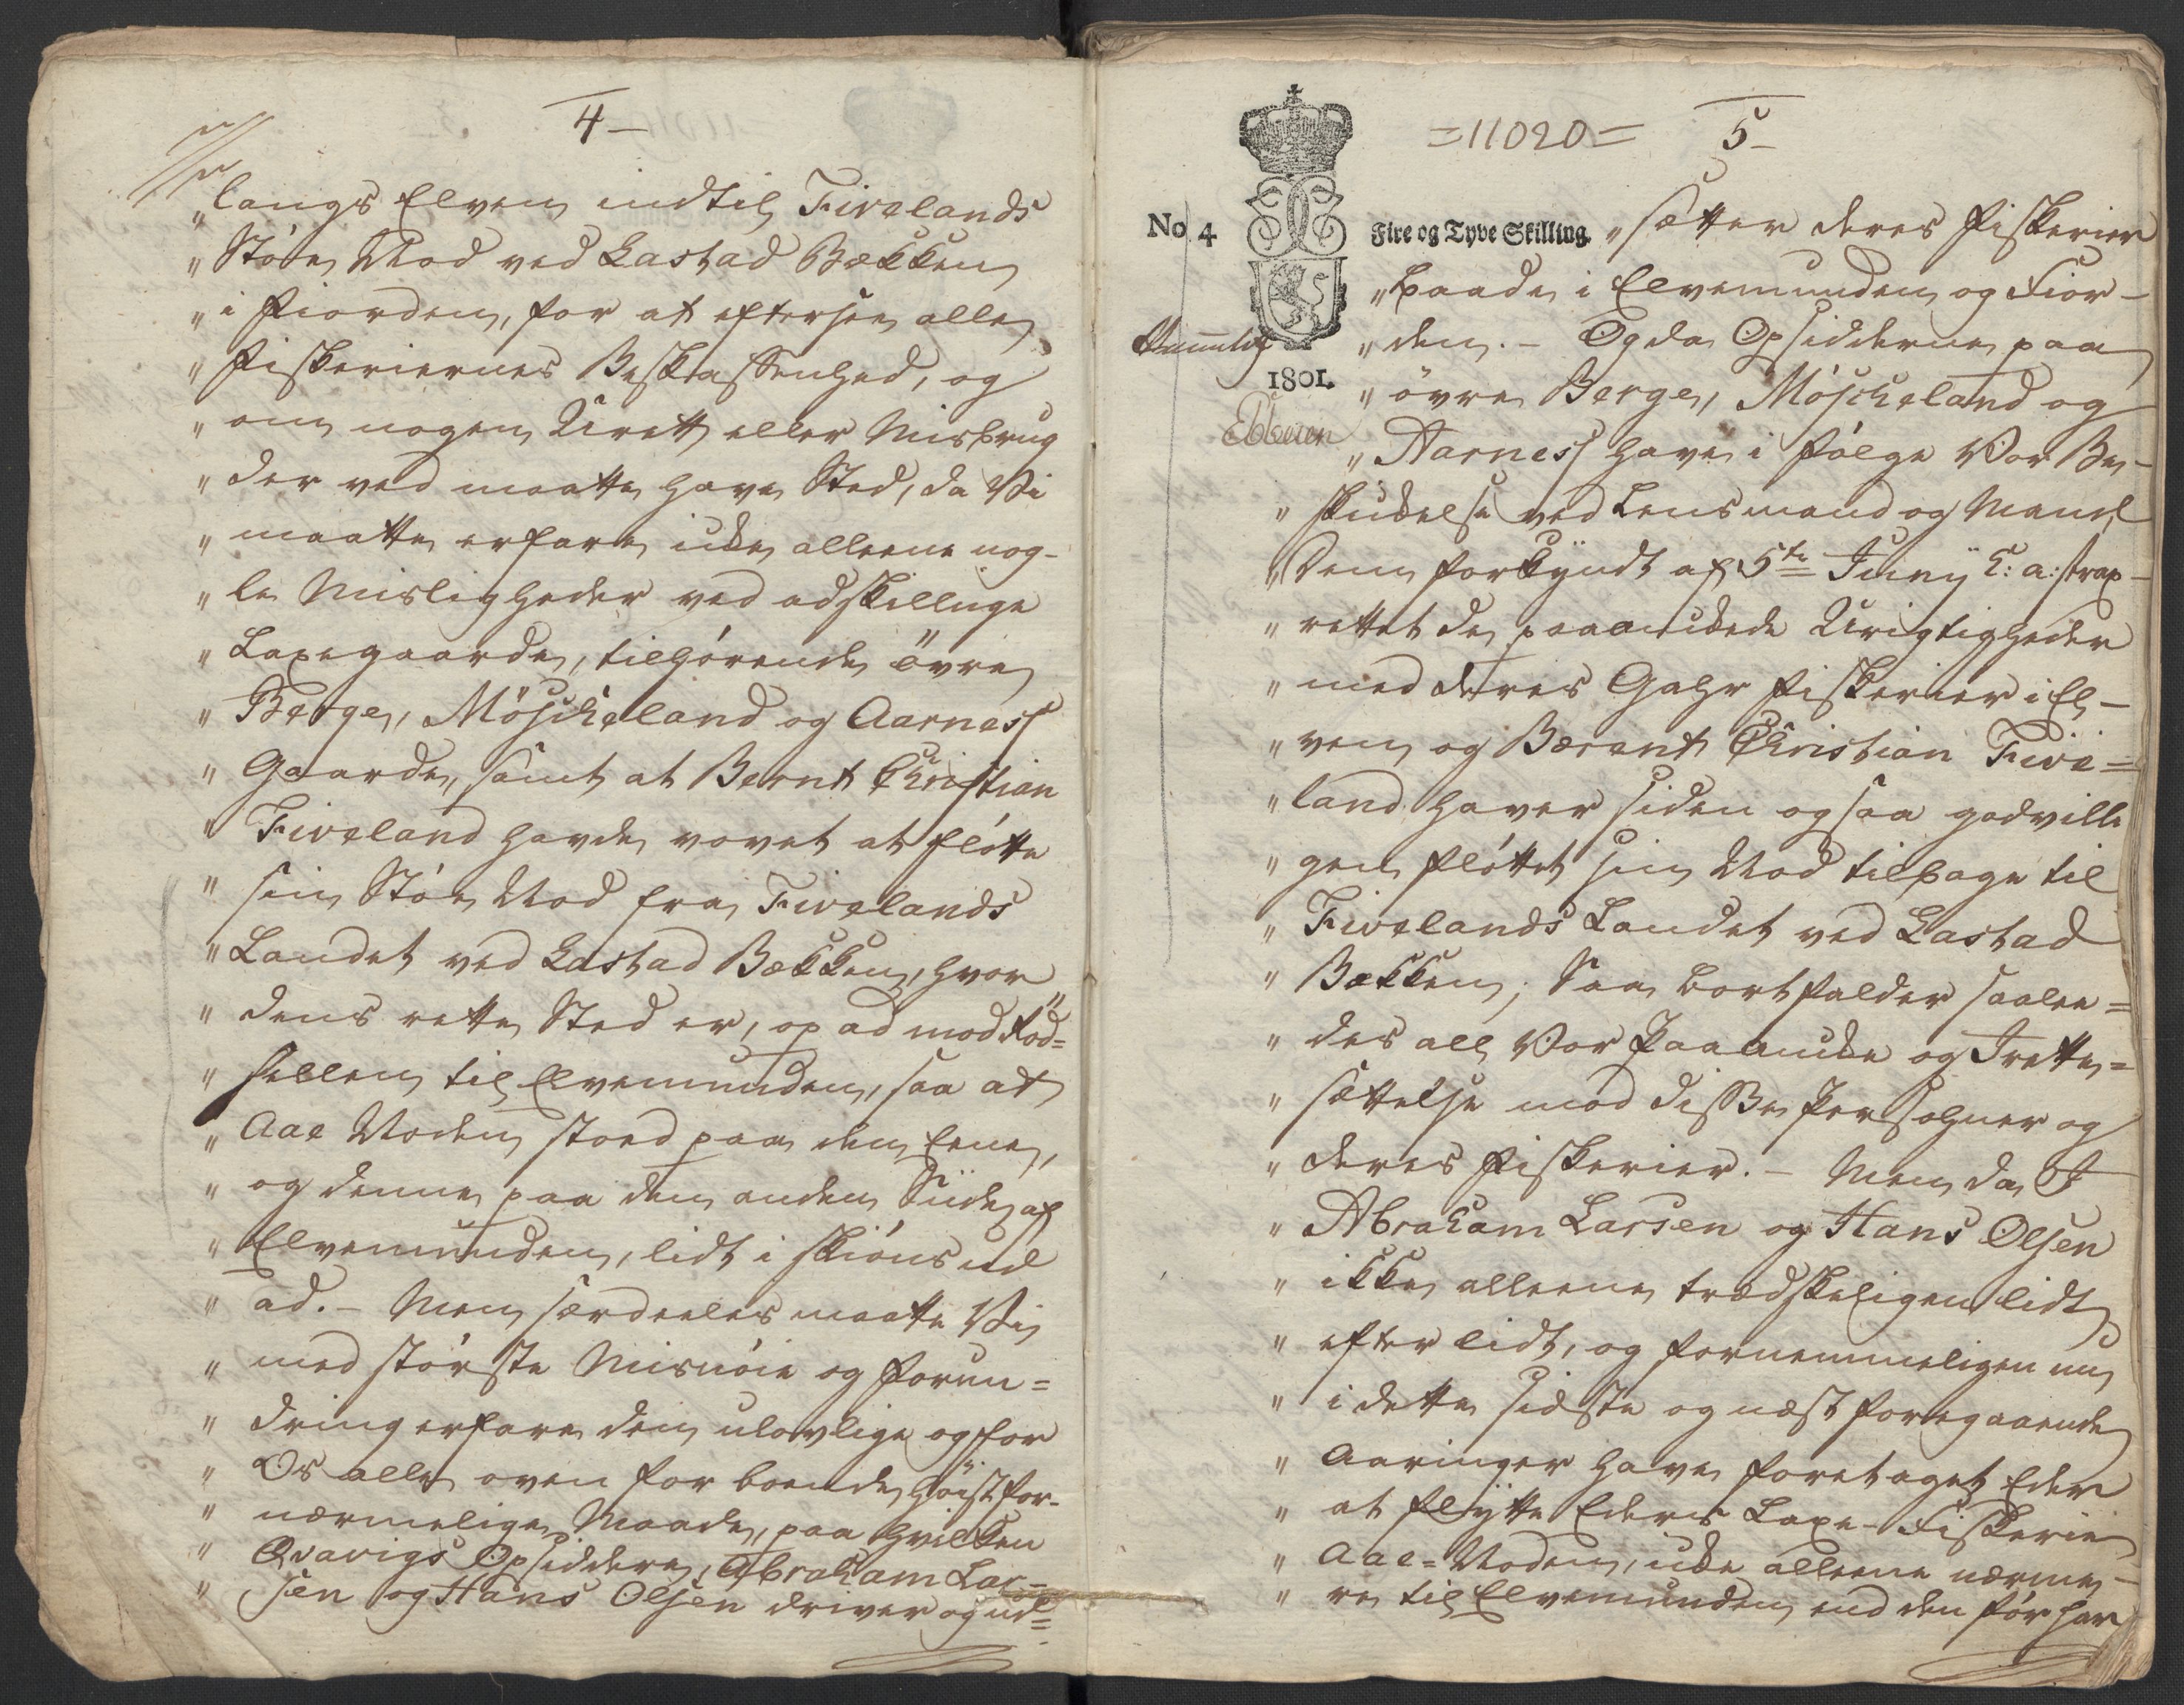 4
„langs Elven indtil Fivelands
„Stöe Nod ved Lastad Bækken
„i Fiorden, for at efterfee alle
„Fiskeriernes Beskaffenhed, og
„om nogen Urett eller Misbrug
„der ved maatte have Sted, da Vi
„maatte erfare ikke alleene nog-
„le Misligheder ved adskillige
„Laxegaarde, tilhörende övre
„Berge, Möscheland og Aarness
„Gaarde, samt at Bernt Christian
„Fiveland havde vovet at fløtte
„sin Stöe Nod fra Fivelands
„Landet ved Lastad Bækken, hvor
„dens rette Sted er, op ad mod
„til Elvemunden, saa at
„Aae Noden stoed paa den Eene,
„og denne paa den anden Siide af
„Elvemunden, lidt i skiöns ud
„ad. - Men særdeeles maatte Vi
„med störste Misnöie og Forun=
„dring erfare den ulovlige og for
„Os alle oven for boende höist for-
„nærmelige Maade, paa hvilken
„Qvavigs Opsiddere, Abraham Lar=
„sen og Hans Olsen driver og ud=
=11020= 5
No 4 Fire og Tyve Skilling.
1801.
Ebbesen
„sætter deres Fiskerier
„baade i Elvemunden og Fior-
„den. - Og da Opsidderne paa
„övre Berge, Möscheland og
„Aarness have i fölge Vor Be-
„skikkelse ved Lensmand og Mand
„Dem forkyndt af 5te Juny h: a: strax
„rettet de paaankede Urigtigheder
„med deres Fiskerier i El-
„ven og Berent Christian Five=
„land haver siden ogsaa godvilli
„gen fløttet sin Nod tilbage til
„Fivelands Landet ved Lastad
„Bækken; Saa bortfalder saalee=
„des all Vor Paaanke og Irette=
„sættelse mod disse Personer og
„deres Fiskerier. - Men da I
„Abraham Larsen og Hans Olsen
„ikke alleene trædskeligen lidt
„efter lidt, og fornemmeligen nu
„i dette sidste og næst foregaaende
„Aaringer have foretaget Eder
„at flytte Eders Laxe-Fiskerie
„Aae-Noden, ikke alleene nærme-
„re til Elvemunden end den för har